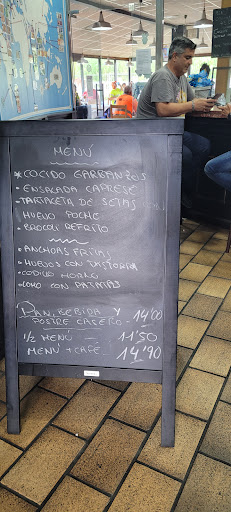 MENÚ
* COCIDO GARBANZOS
• ENSALADA CAPRESE
• TARTALETA DE SETAS CON
HUEVO POCHE
• BROCOLI REFRITO
• ANCHOAS FRITAS
• HUEVOS CON TXISTORRA
• CODILLO HORNO
• LOMO CON PATATAS
PAN, BEBIDA Y
POSTRE CASERO - 14'00
½ MENÚ - 11'50
MENÚ + CAFÉ - 14'90